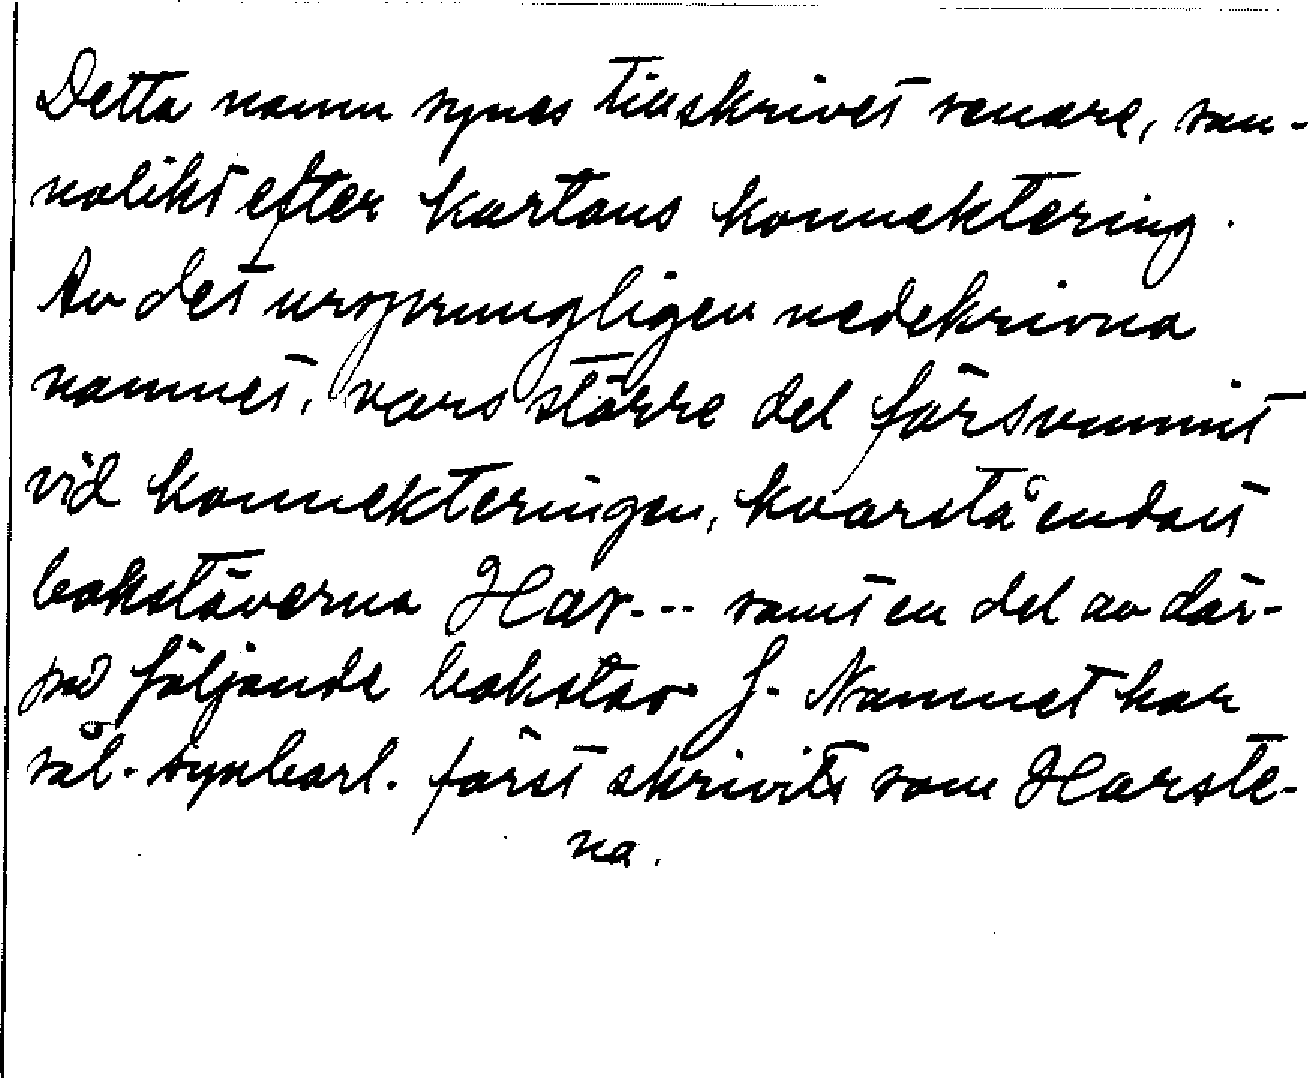 Detta namn synes tillskrivet senare, san-
nolikt efter kartans konnektering.
Av det ursprungligen nedskrivna
namnet, vars större del försvunnit
vid konnekteringen, kvarstå endast
bokstäverna Har--- samt en del av där-
på följande bokstav f. Namnet har
sål. synbarl. först skrivits som Harste-
na.